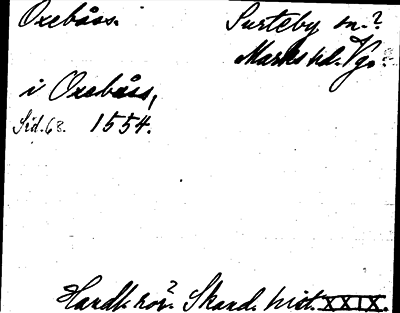 Oxebåss. Surteby sn.?
Marks hd. Vg.
i Oxebåss,
Sid. 68. 1554.
Handl. rör? Skand. hist. XXIX.